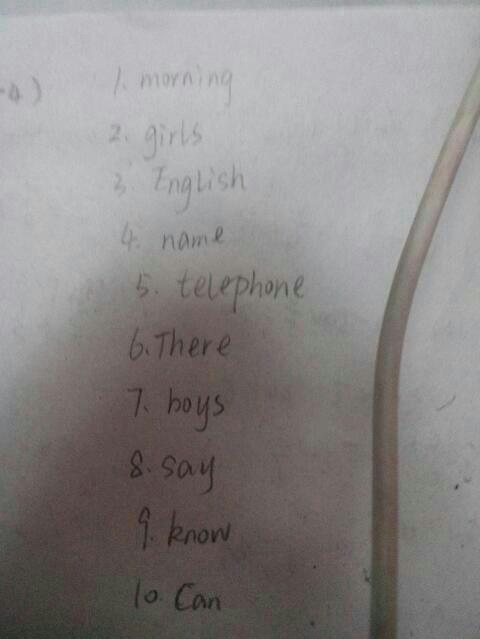 -4)
1. morning
2. girls
3. English
4. name
5. telephone
6. There
7. boys
8. say
9. know
10. Can